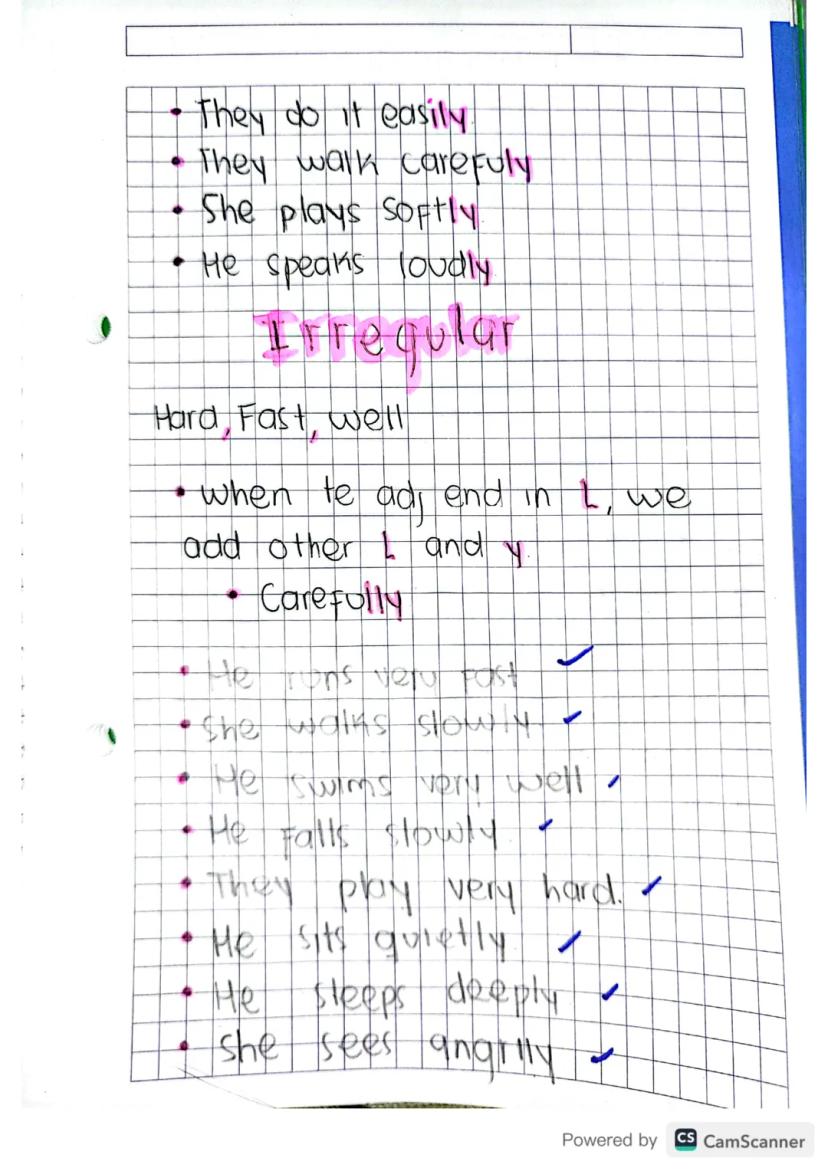 • They do it easily
• They walk carefuly
• She plays softly
• He speaks loudly
Irregular
Hard, Fast, well
• when te adj end in L, we
add other L and y.
• Carefully
• He runs very fast
• She walks slowly
• He swims very well
• He falls slowly
• They play very hard.
• He sits quietly
• He sleeps deeply
• she sees angrily
Powered by CS CamScanner